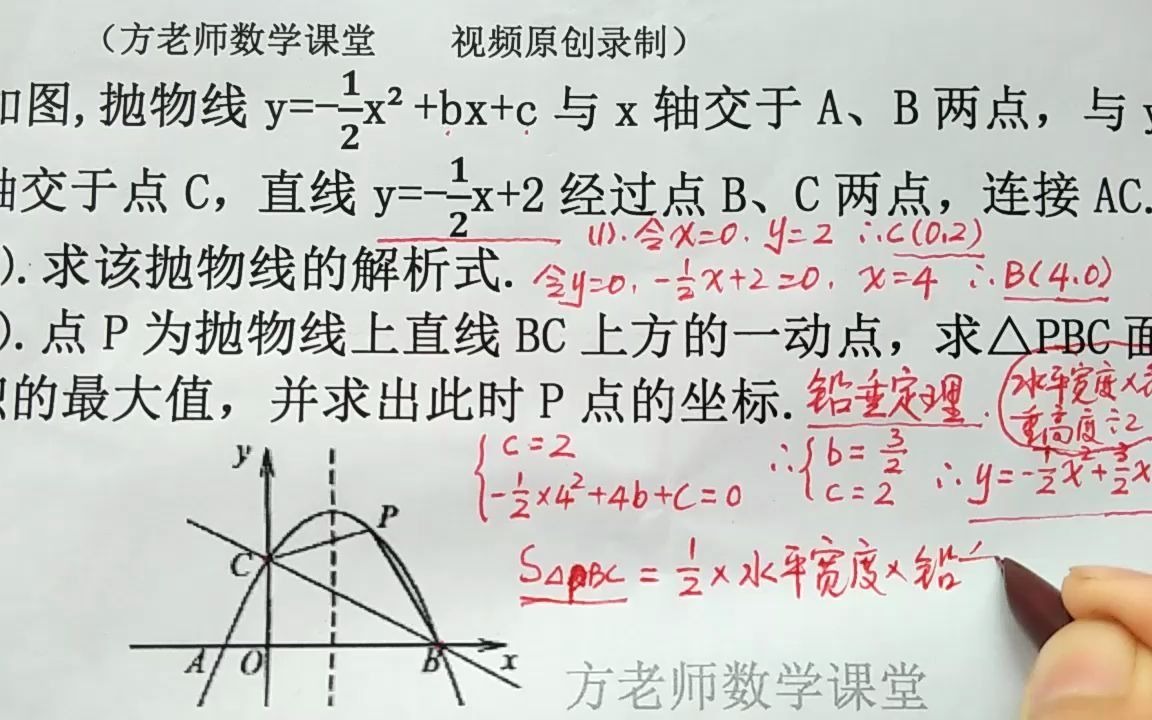 （方老师数学课堂 视频原创录制）
如图,抛物线 y=-1/2x²+bx+c 与 x 轴交于 A、B 两点，与 y
轴交于点 C，直线 y=-1/2x+2 经过点 B、C 两点，连接 AC.
(1).令x=0. y=2 ∴C(0,2)
).求该抛物线的解析式.
令y=0, -1/2x+2=0, x=4 ∴B(4.0)
).点 P 为抛物线上直线 BC 上方的一动点，求△PBC 面
积的最大值，并求出此时 P 点的坐标.
铅垂定理.
水平宽度×铅
垂高度÷2
{c=2
-1/2×4²+4b+c=0
∴{b=3/2
c=2
∴y=-1/2x²+3/2x
S△PBC=1/2×水平宽度×铅
y
P
C
A O B x
方老师数学课堂